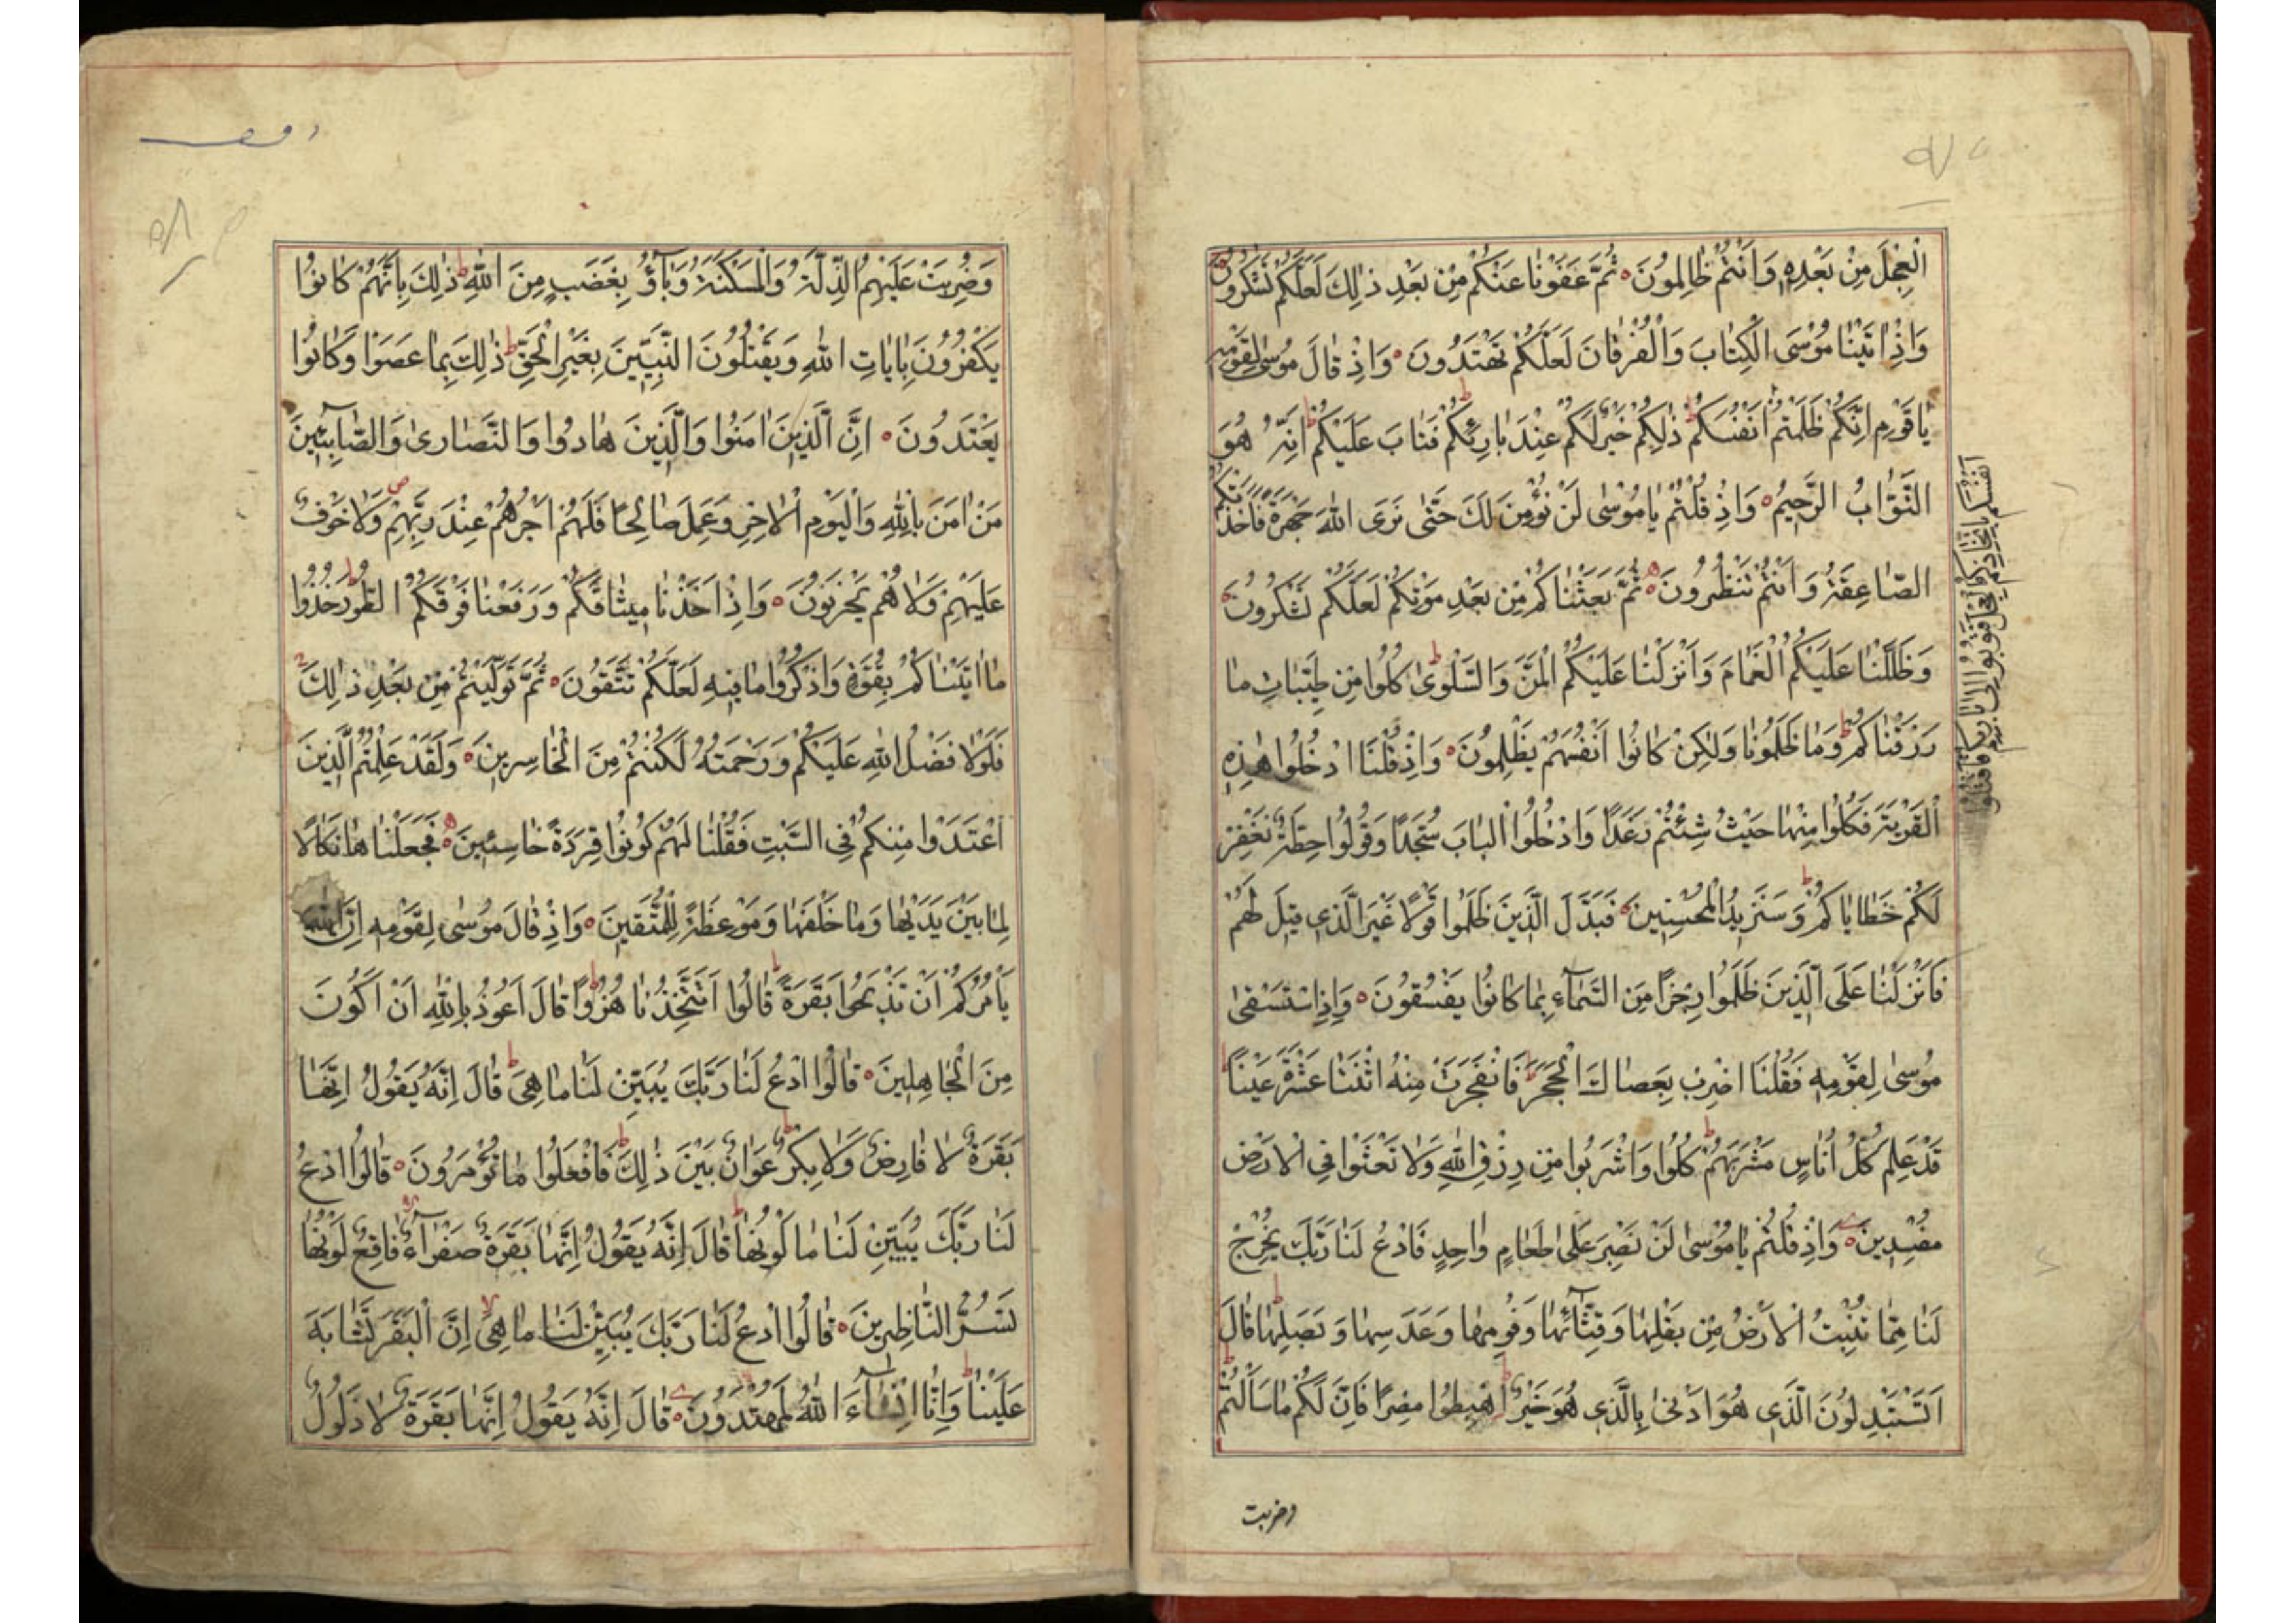 الْعِجْلَ مِنْ بَعْدِهِ وَاَنْتُمْ ظَالِمُونَ ثُمَّ عَفَوْنَا عَنْكُمْ مِنْ بَعْدِ ذٰلِكَ لَعَلَّكُمْ تَشْكُرُونَ
وَاِذْ اٰتَيْنَا مُوْسَى الْكِتَابَ وَالْفُرْقَانَ لَعَلَّكُمْ تَهْتَدُونَ وَاِذْ قَالَ مُوسٰى لِقَوْمِهِ
يَا قَوْمِ اِنَّكُمْ ظَلَمْتُمْ اَنْفُسَكُمْ ذٰلِكُمْ خَيْرٌ لَكُمْ عِنْدَ بَارِئِكُمْ فَتَابَ عَلَيْكُمْ اِنَّهُ هُوَ
التَّوَّابُ الرَّحِيمُ وَاِذْ قُلْتُمْ يَا مُوْسٰى لَنْ نُؤْمِنَ لَكَ حَتّٰى نَرَى اللّٰهَ جَهْرَةً فَاَخَذَتْكُمُ
الصَّاعِقَةُ وَاَنْتُمْ تَنْظُرُونَ ثُمَّ بَعَثْنَاكُمْ مِنْ بَعْدِ مَوْتِكُمْ لَعَلَّكُمْ تَشْكُرُونَ
وَظَلَّلْنَا عَلَيْكُمُ الْغَمَامَ وَاَنْزَلْنَا عَلَيْكُمُ الْمَنَّ وَالسَّلْوٰى كُلُوا مِنْ طَيِّبَاتِ مَا
رَزَقْنَاكُمْ وَمَا ظَلَمُونَا وَلٰكِنْ كَانُوا اَنْفُسَهُمْ يَظْلِمُونَ وَاِذْ قُلْنَا ادْخُلُوا هٰذِهِ
الْقَرْيَةَ فَكُلُوا مِنْهَا حَيْثُ شِئْتُمْ رَغَدًا وَادْخُلُوا الْبَابَ سُجَّدًا وَقُولُوا حِطَّةٌ نَغْفِرْ
لَكُمْ خَطَايَاكُمْ وَسَنَزِيدُ الْمُحْسِنِينَ فَبَدَّلَ الَّذِينَ ظَلَمُوا قَوْلًا غَيْرَ الَّذِي قِيلَ لَهُمْ
فَاَنْزَلْنَا عَلَى الَّذِينَ ظَلَمُوا رِجْزًا مِنَ السَّمَآءِ بِمَا كَانُوا يَفْسُقُونَ وَاِذِ اسْتَسْقٰى
مُوسٰى لِقَوْمِهِ فَقُلْنَا اضْرِبْ بِعَصَاكَ الْحَجَرَ فَانْفَجَرَتْ مِنْهُ اثْنَتَا عَشْرَةَ عَيْنًا
قَدْ عَلِمَ كُلُّ اُنَاسٍ مَشْرَبَهُمْ كُلُوا وَاشْرَبُوا مِنْ رِزْقِ اللّٰهِ وَلَا تَعْثَوْا فِي الْاَرْضِ
مُفْسِدِينَ وَاِذْ قُلْتُمْ يَا مُوْسٰى لَنْ نَصْبِرَ عَلٰى طَعَامٍ وَاحِدٍ فَادْعُ لَنَا رَبَّكَ يُخْرِجْ
لَنَا مِمَّا تُنْبِتُ الْاَرْضُ مِنْ بَقْلِهَا وَقِثَّآئِهَا وَفُومِهَا وَعَدَسِهَا وَبَصَلِهَا قَالَ
اَتَسْتَبْدِلُونَ الَّذِي هُوَ اَدْنٰى بِالَّذِي هُوَ خَيْرٌ اِهْبِطُوا مِصْرًا فَاِنَّ لَكُمْ مَا سَاَلْتُمْ
وضربت
اَنْفُسَكُمْ بِاتِّخَاذِكُمُ الْعِجْلَ فَتُوبُوا اِلٰى بَارِئِكُمْ فَاقْتُلُوا
وَضُرِبَتْ عَلَيْهِمُ الذِّلَّةُ وَالْمَسْكَنَةُ وَبَآؤُ بِغَضَبٍ مِنَ اللّٰهِ ذٰلِكَ بِاَنَّهُمْ كَانُوا
يَكْفُرُونَ بِاٰيَاتِ اللّٰهِ وَيَقْتُلُونَ النَّبِيِّينَ بِغَيْرِ الْحَقِّ ذٰلِكَ بِمَا عَصَوْا وَكَانُوا
يَعْتَدُونَ اِنَّ الَّذِينَ اٰمَنُوا وَالَّذِينَ هَادُوا وَالنَّصَارٰى وَالصَّابِئِينَ
مَنْ اٰمَنَ بِاللّٰهِ وَالْيَوْمِ الْاٰخِرِ وَعَمِلَ صَالِحًا فَلَهُمْ اَجْرُهُمْ عِنْدَ رَبِّهِمْ وَلَا خَوْفٌ
عَلَيْهِمْ وَلَا هُمْ يَحْزَنُونَ وَاِذْ اَخَذْنَا مِيثَاقَكُمْ وَرَفَعْنَا فَوْقَكُمُ الطُّورَ خُذُوا
مَا اٰتَيْنَاكُمْ بِقُوَّةٍ وَاذْكُرُوا مَا فِيهِ لَعَلَّكُمْ تَتَّقُونَ ثُمَّ تَوَلَّيْتُمْ مِنْ بَعْدِ ذٰلِكَ
فَلَوْلَا فَضْلُ اللّٰهِ عَلَيْكُمْ وَرَحْمَتُهُ لَكُنْتُمْ مِنَ الْخَاسِرِينَ وَلَقَدْ عَلِمْتُمُ الَّذِينَ
اعْتَدَوْا مِنْكُمْ فِي السَّبْتِ فَقُلْنَا لَهُمْ كُونُوا قِرَدَةً خَاسِئِينَ فَجَعَلْنَاهَا نَكَالًا
لِمَا بَيْنَ يَدَيْهَا وَمَا خَلْفَهَا وَمَوْعِظَةً لِلْمُتَّقِينَ وَاِذْ قَالَ مُوسٰى لِقَوْمِهِ اِنَّ اللّٰهَ
يَاْمُرُكُمْ اَنْ تَذْبَحُوا بَقَرَةً قَالُوا اَتَتَّخِذُنَا هُزُوًا قَالَ اَعُوذُ بِاللّٰهِ اَنْ اَكُونَ
مِنَ الْجَاهِلِينَ قَالُوا ادْعُ لَنَا رَبَّكَ يُبَيِّنْ لَنَا مَا هِيَ قَالَ اِنَّهُ يَقُولُ اِنَّهَا
بَقَرَةٌ لَا فَارِضٌ وَلَا بِكْرٌ عَوَانٌ بَيْنَ ذٰلِكَ فَافْعَلُوا مَا تُؤْمَرُونَ قَالُوا ادْعُ
لَنَا رَبَّكَ يُبَيِّنْ لَنَا مَا لَوْنُهَا قَالَ اِنَّهُ يَقُولُ اِنَّهَا بَقَرَةٌ صَفْرَآءُ فَاقِعٌ لَوْنُهَا
تَسُرُّ النَّاظِرِينَ قَالُوا ادْعُ لَنَا رَبَّكَ يُبَيِّنْ لَنَا مَا هِيَ اِنَّ الْبَقَرَ تَشَابَهَ
عَلَيْنَا وَاِنَّا اِنْ شَآءَ اللّٰهُ لَمُهْتَدُونَ قَالَ اِنَّهُ يَقُولُ اِنَّهَا بَقَرَةٌ لَا ذَلُولٌ